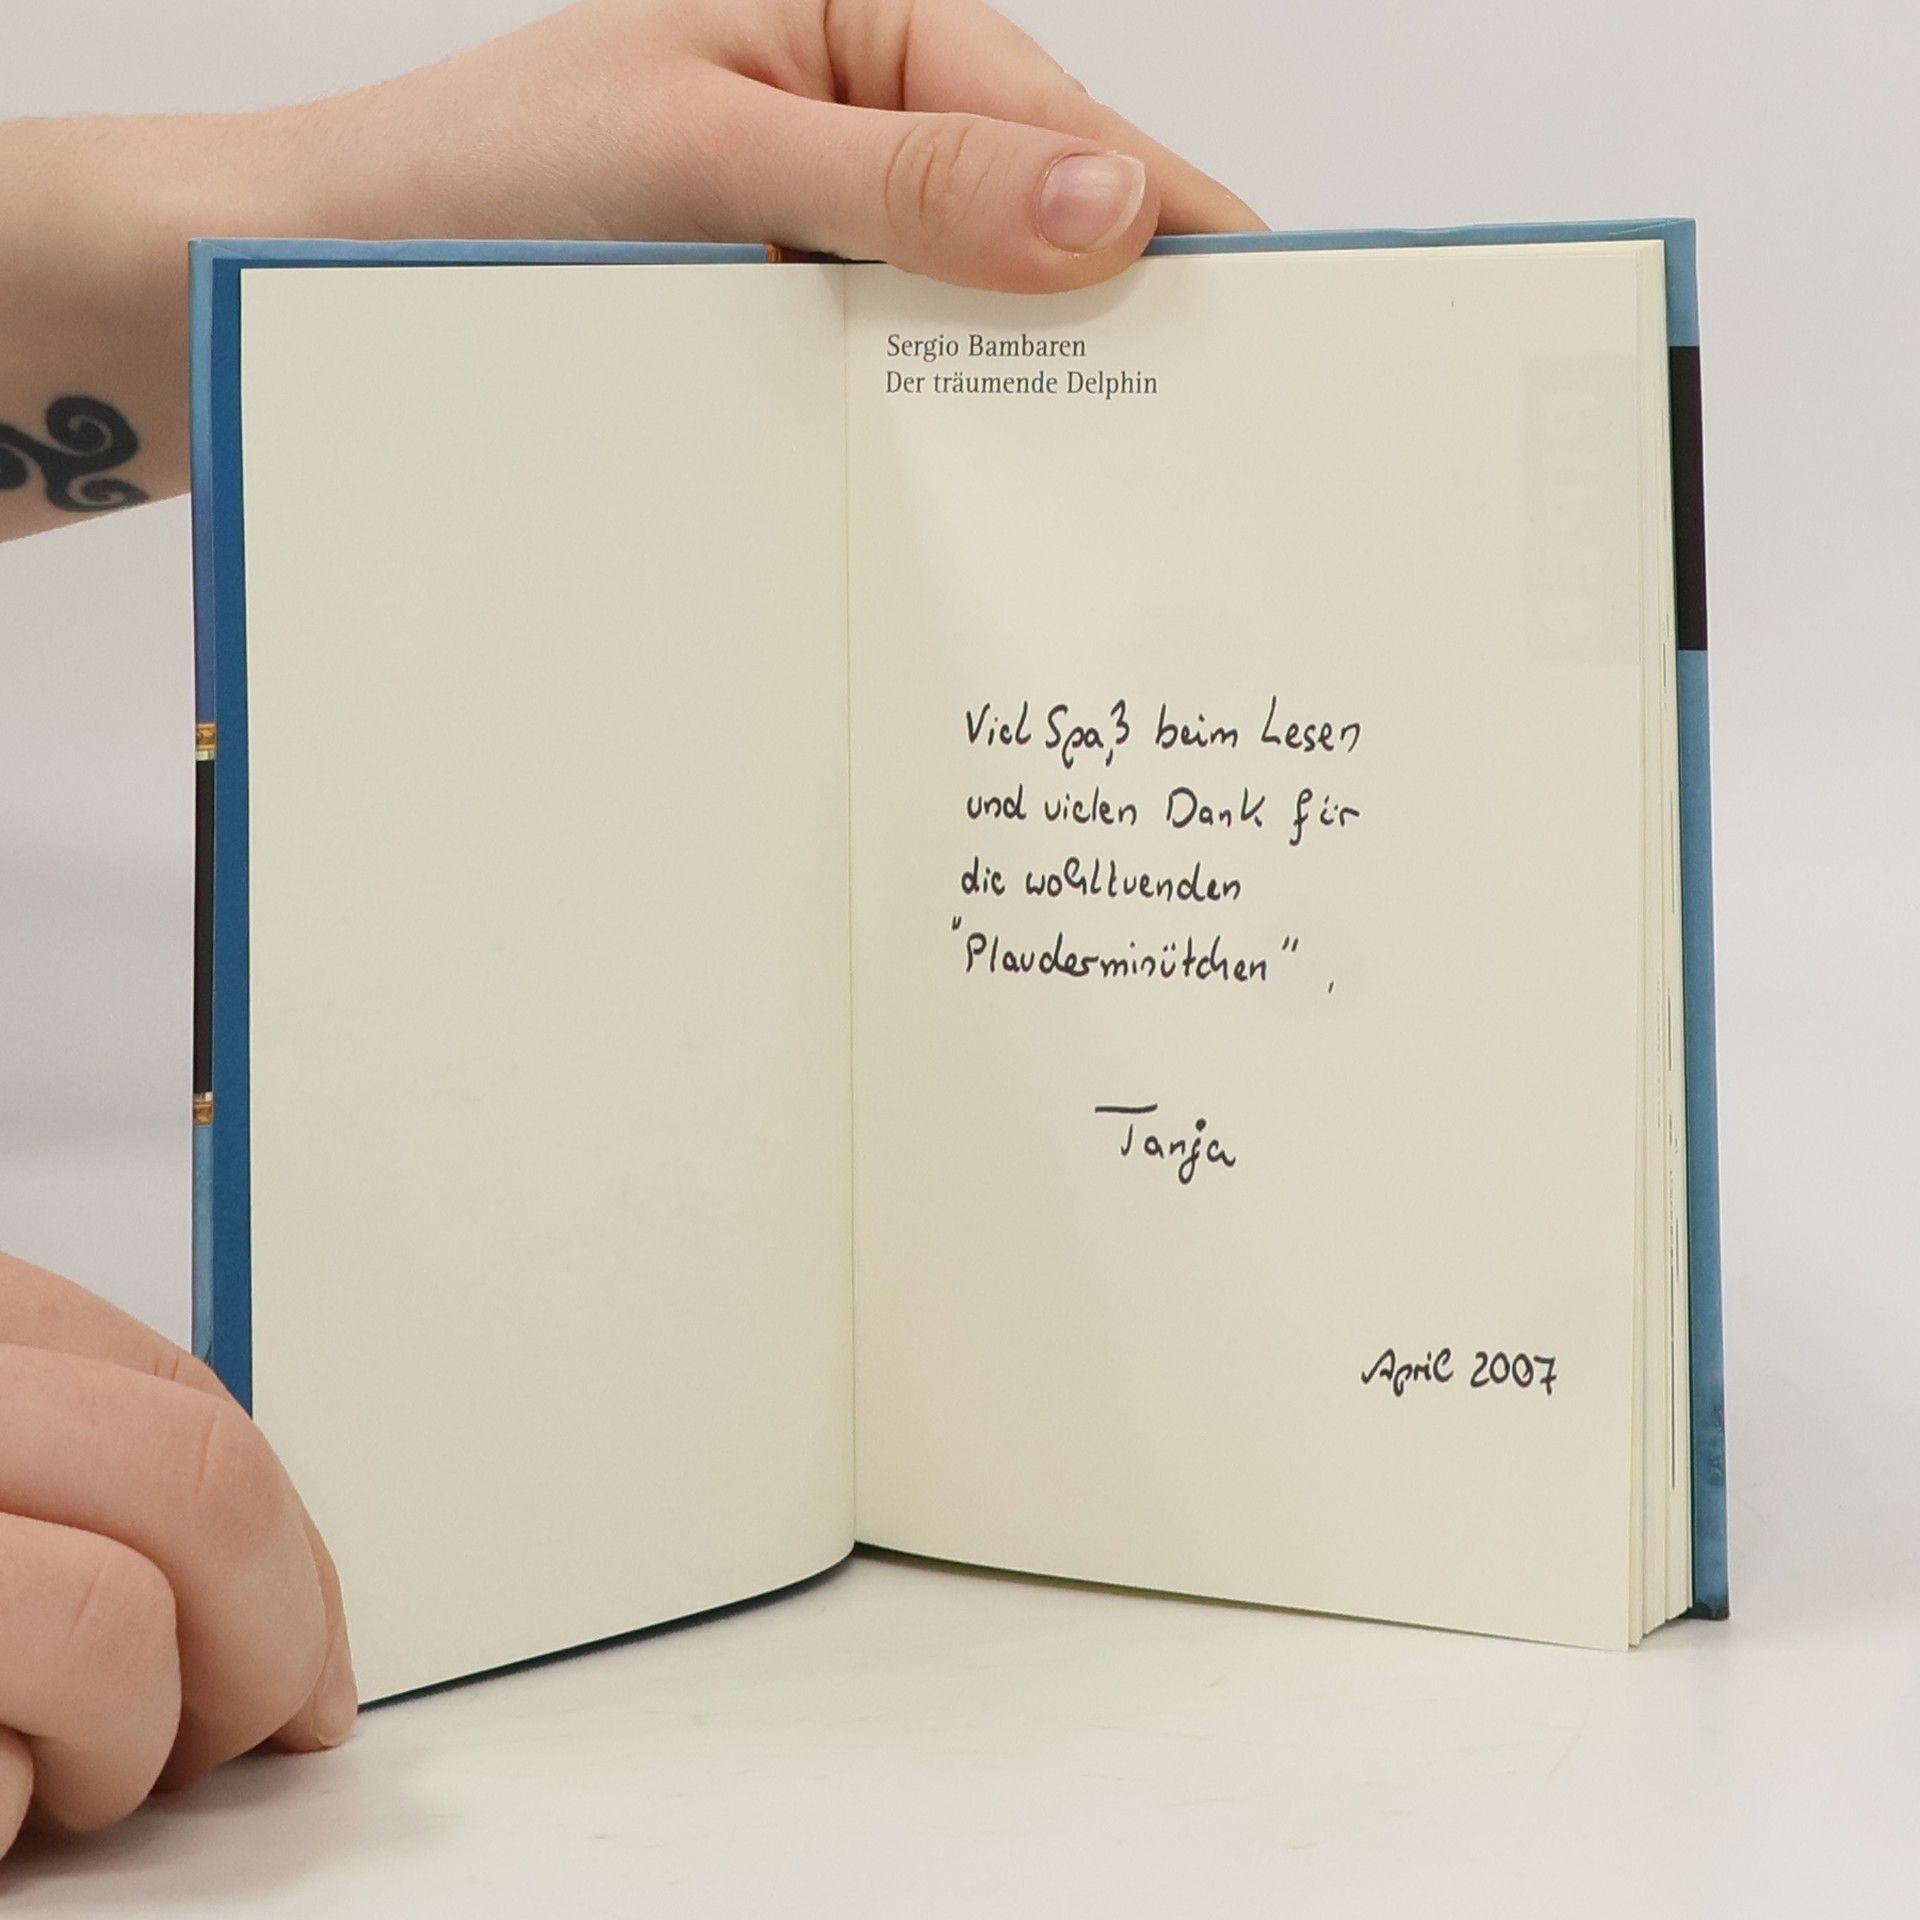 Sergio Bambaren
Der träumende Delphin
Viel Spaß beim Lesen
und vielen Dank für
die wohltuenden
"Plauderminütchen",
Tanja
April 2007